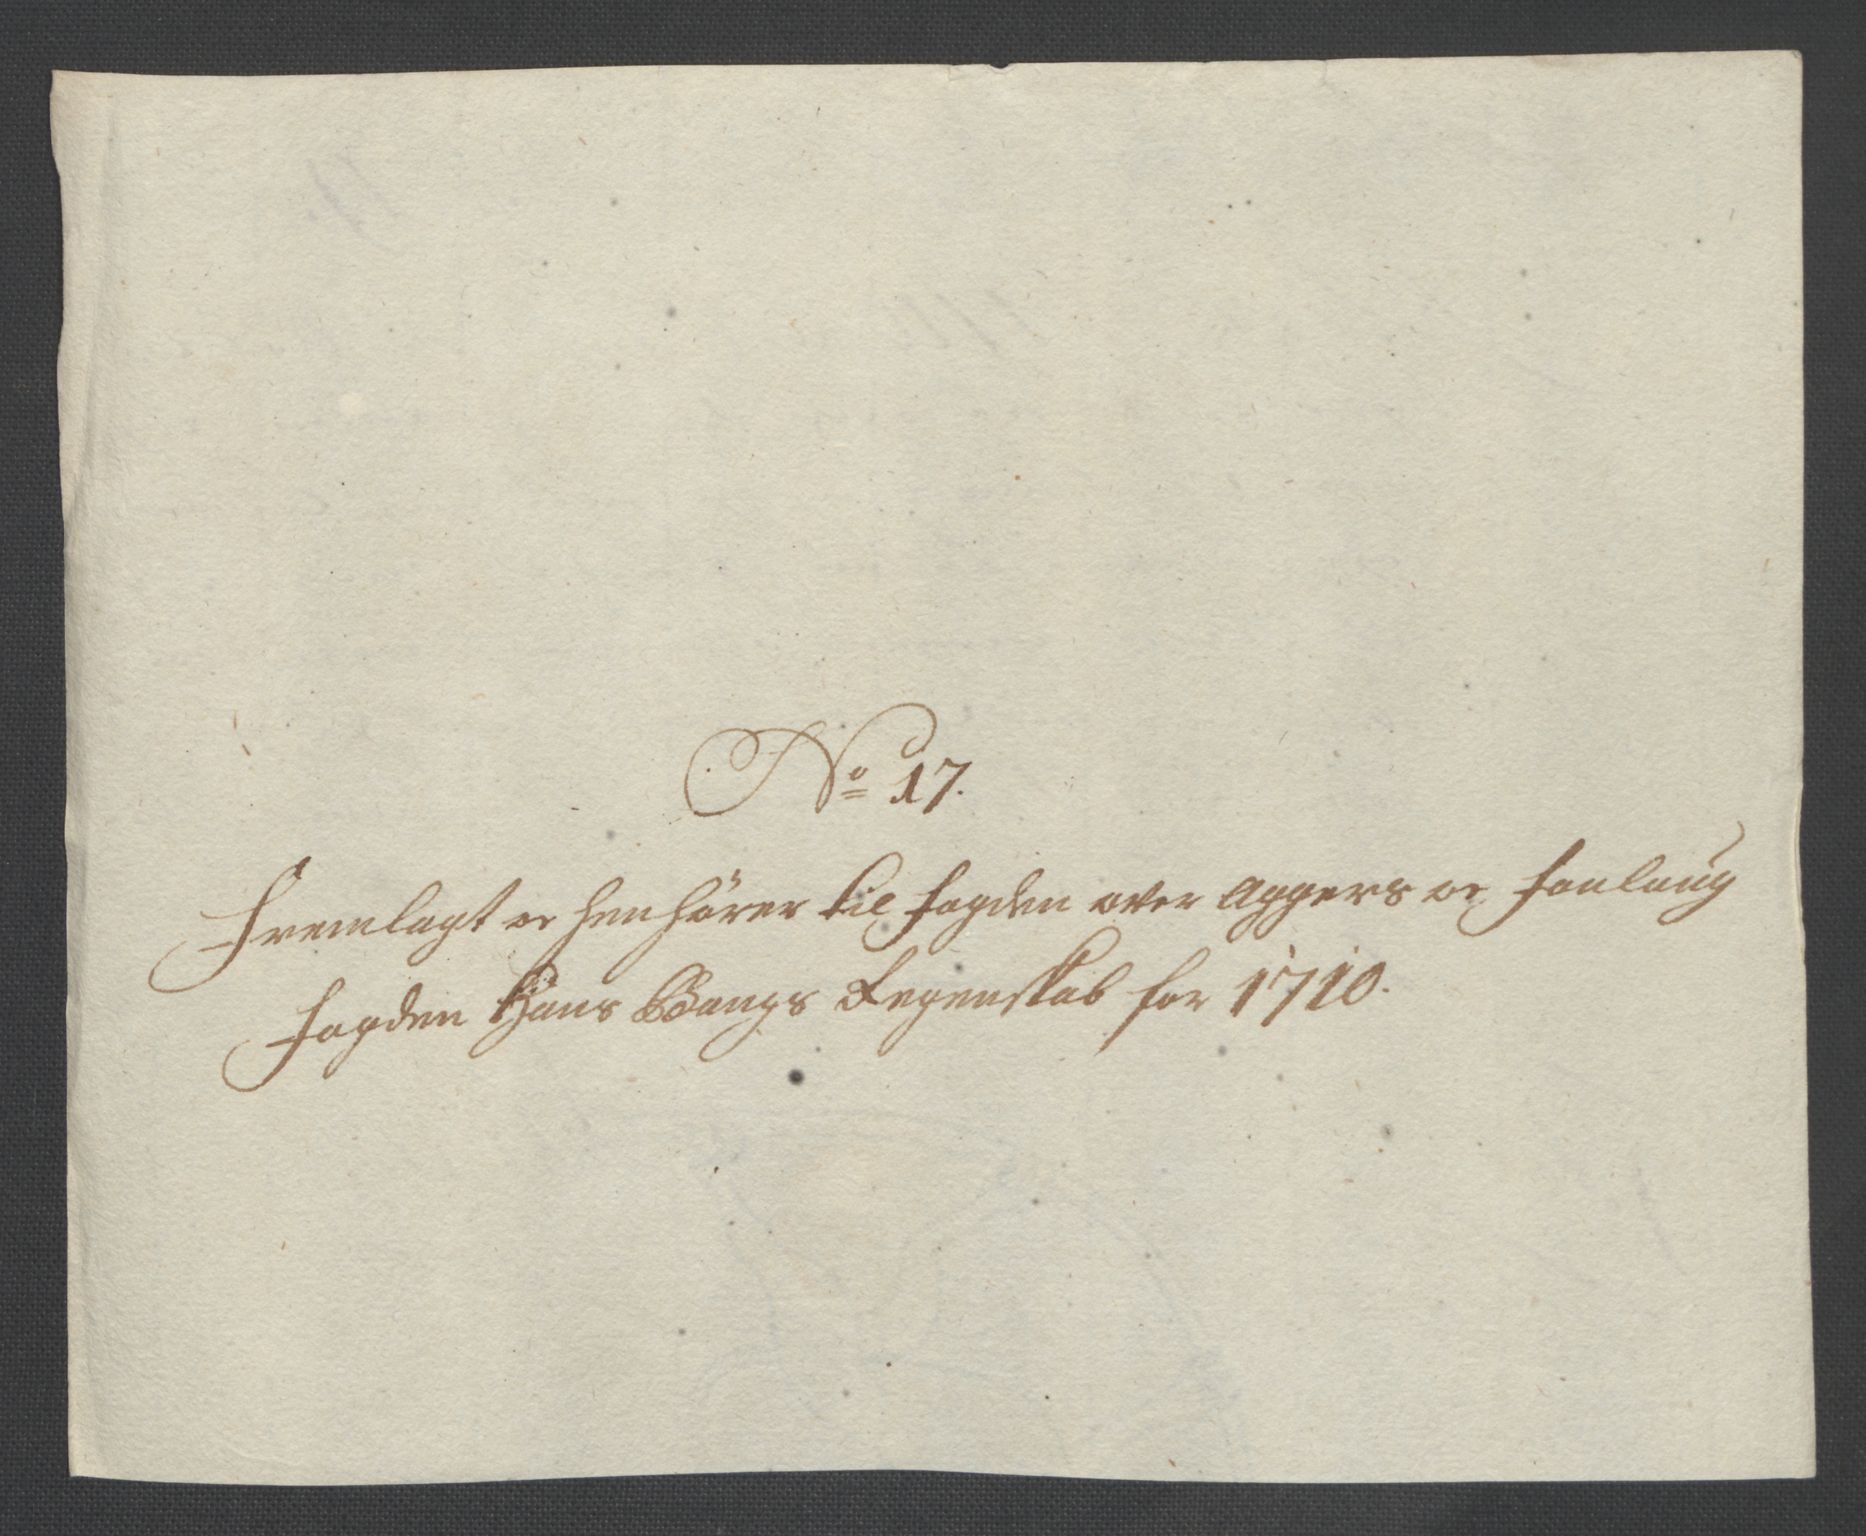 No 17.
Fremlagt oc henhörer til fogden over Aggers oc Follaug
fogden Hans Bangs Regenskab for 1710.